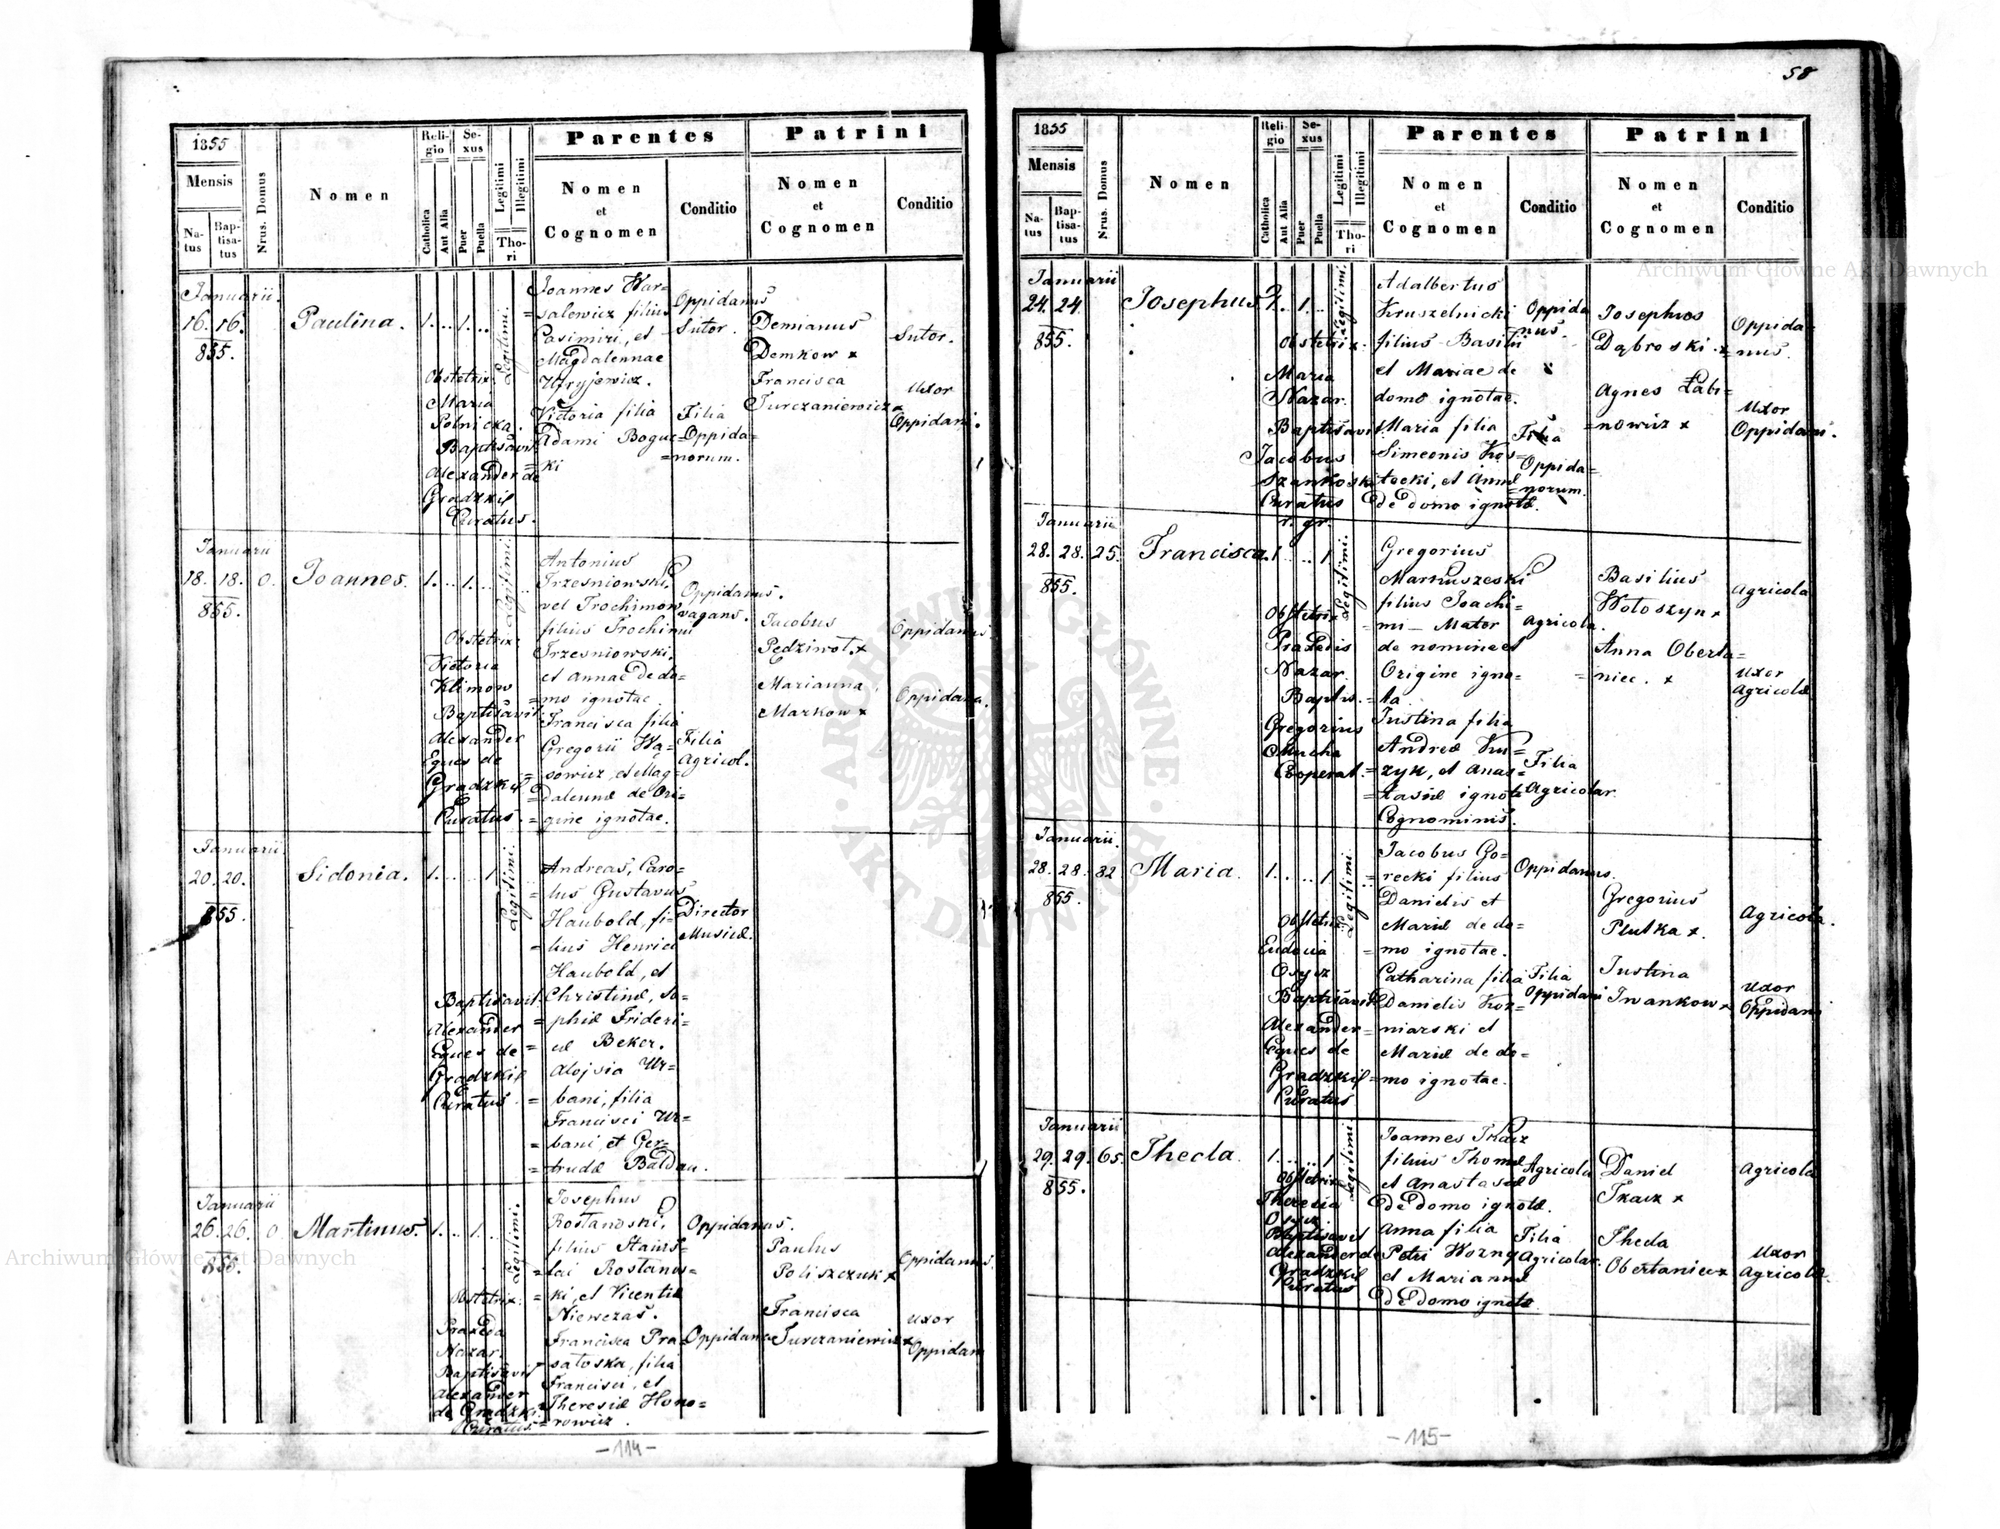 58
1855
Mensis
Natus
Baptisatus
Nrus. Domus
Nomen
Religio
Catholica
Aut Alia
Sexus
Puer
Puella
Legitimi
Illegitimi
Thori
Parentes
Nomen
et
Cognomen
Conditio
Patrini
Nomen
et
Cognomen
Conditio
Januarii.
16. 16.
855.
Paulina.
1. .. 1. ..
Legitimi.
Obstetrix:
Maria
Polnicka.
Baptisavit
Alexander de
Gradzkil
Curatus.
Joannes War=
=salewicz filius
Casimiri, et
Magdalennae
Victoria filia
Adami Boguc=
=ki
Oppidanus
Sutor.
Filia
Oppida=
=norum.
Demianus
Demkow x
Francisca
Turczaniewicz x
Sutor.
Uxor
Oppidani.
Januarii
18. 18. 0.
855.
Joannes.
1. .. 1. ..
Legitimi.
Obstetrix:
Victoria
Klimow
Baptisavit:
Alexander
Eques de
Gradzkil
Curatus.
Antonius
Trzesniowski,
vel Trochimow
filius Trochimi
Trzesniowski,
et Annae de do=
=mo ignotae
Francisca filia
Gregorii Wą=
=sowicz, et Mag=
=dalennae de Ori=
=gine ignotae.
Oppidanus.
vagans.
Filia
Agricol.
Jacobus
Pędziwol. x
Marianna
Markow x
Oppidanus
Oppidana.
Januarii.
20. 20.
855.
Sidonia.
1. .. .. 1.
Legitimi.
Baptisavit.
Alexander
Eques de
Gradzkil
Curatus
Andreas, Caro=
=lus Gustavus
Haubold, fi=
=lius Henrici
Haubold, et
Christinae, So=
=phiae Frideri=
=cae Beker.
Alojsia Ur=
=bani, filia
Francisci Ur=
=bani, et Ger=
=trudae Baldau.
Director
Musicae.
Januarii
26. 26. 0
855.
Martinus.
1. .. 1. ..
Legitimi.
Obstetrix:
Praxeda
Nazar.
Baptisavit
Alexander
de Gradzki
Curatus.
Josephus
Rostanoski,
filius Stanis=
=lai Rostanos=
=ki, et Vicentiae
Niewczas.
Francisca Pra=
=satoska, filia
Francisci, et
Theresiae Hono=
=rowicz.
Oppidanus.
Oppidanae
Paulus
Poliszczuk x
Francisca
Turczaniewicz x
Oppidanus.
Uxor
Oppidani
-114-
1855
Mensis
Natus
Baptisatus
Nrus. Domus
Nomen
Religio
Catholica
Aut Alia
Sexus
Puer
Puella
Legitimi
Illegitimi
Thori
Parentes
Nomen
et
Cognomen
Conditio
Patrini
Nomen
et
Cognomen
Conditio
Januarii
24. 24.
855.
Josephus
1. .. 1. ..
Legitimi.
Obstetrix:
Maria
Nazar.
Baptisavit.
Jacobus
Szankoski
Curatus
r. gr.
Adalbertus
Kruszelnicki
filius Basilii
et Mariae de
domo ignotae.
Maria filia
Simeonis Kos=
=tecki, et Annae
de domo ignotae.
Oppida
nus.
Filia
Oppida=
=norum.
Josephus
Dąbroski. x
Agnes Łabi=
=nowicz x
Oppida=
=nus.
Uxor
Oppidani.
Januarii
28. 28. 25.
855.
Francisca.
1. .. .. 1.
Legitimi.
Obstetrix
Praxedis
Nazar.
Baptis.
Gregorius
Mucha
Cooperat.
Gregorius
Martiuszeski
filius Joachi=
=mi - Mater
de nomine et
Origine igno=
=ta.
Justina filia
Andreae Ku=
=zyk, et Anas=
=tasiae ignoti
Cognominis.
Agricola.
Filia
Agricolar.
Basilius
Wołoszyn x
Anna Oberta=
=niec. x
Agricola
Uxor
Agricolae
Januarii.
28. 28. 32
855.
Maria.
1. .. .. 1.
Legitimi.
Obstetrix
Eudocia
Osycz
Baptisavit
Alexander
Eques de
Gradzkil
Curatus
Jacobus Go=
=recki filius
Danielis et
Mariae de do=
=mo ignotae.
Catharina filia
Danielis Koz=
=niarski et
Mariae de do=
=mo ignotae.
Oppidanus.
Filia
Oppidani
Gregorius
Plutka x.
Justina
Iwankow x
Agricola.
Uxor
Oppidani
Januarii
29. 29. 65.
855.
Thecla.
1. .. .. 1.
Legitimi
Obstetrix
Theresia
Osycz.
Baptisavit
Alexander de
Gradzkil
Curatus
Joannes Tkacz
filius Thomae
et Anastasiae
de domo ignotae.
Anna filia
Petri Worny
et Mariannae
de domo ignotae.
Agricola
Filia
Agricolar.
Daniel
Tkacz x
Thecla
Obertaniec x
Agricola
Uxor
Agricolae.
-115-
Archiwum Główne Akt Dawnych
Archiwum Główne Akt Dawnych
ARCHIWUM GŁÓWNE
AKT DAWNYCH